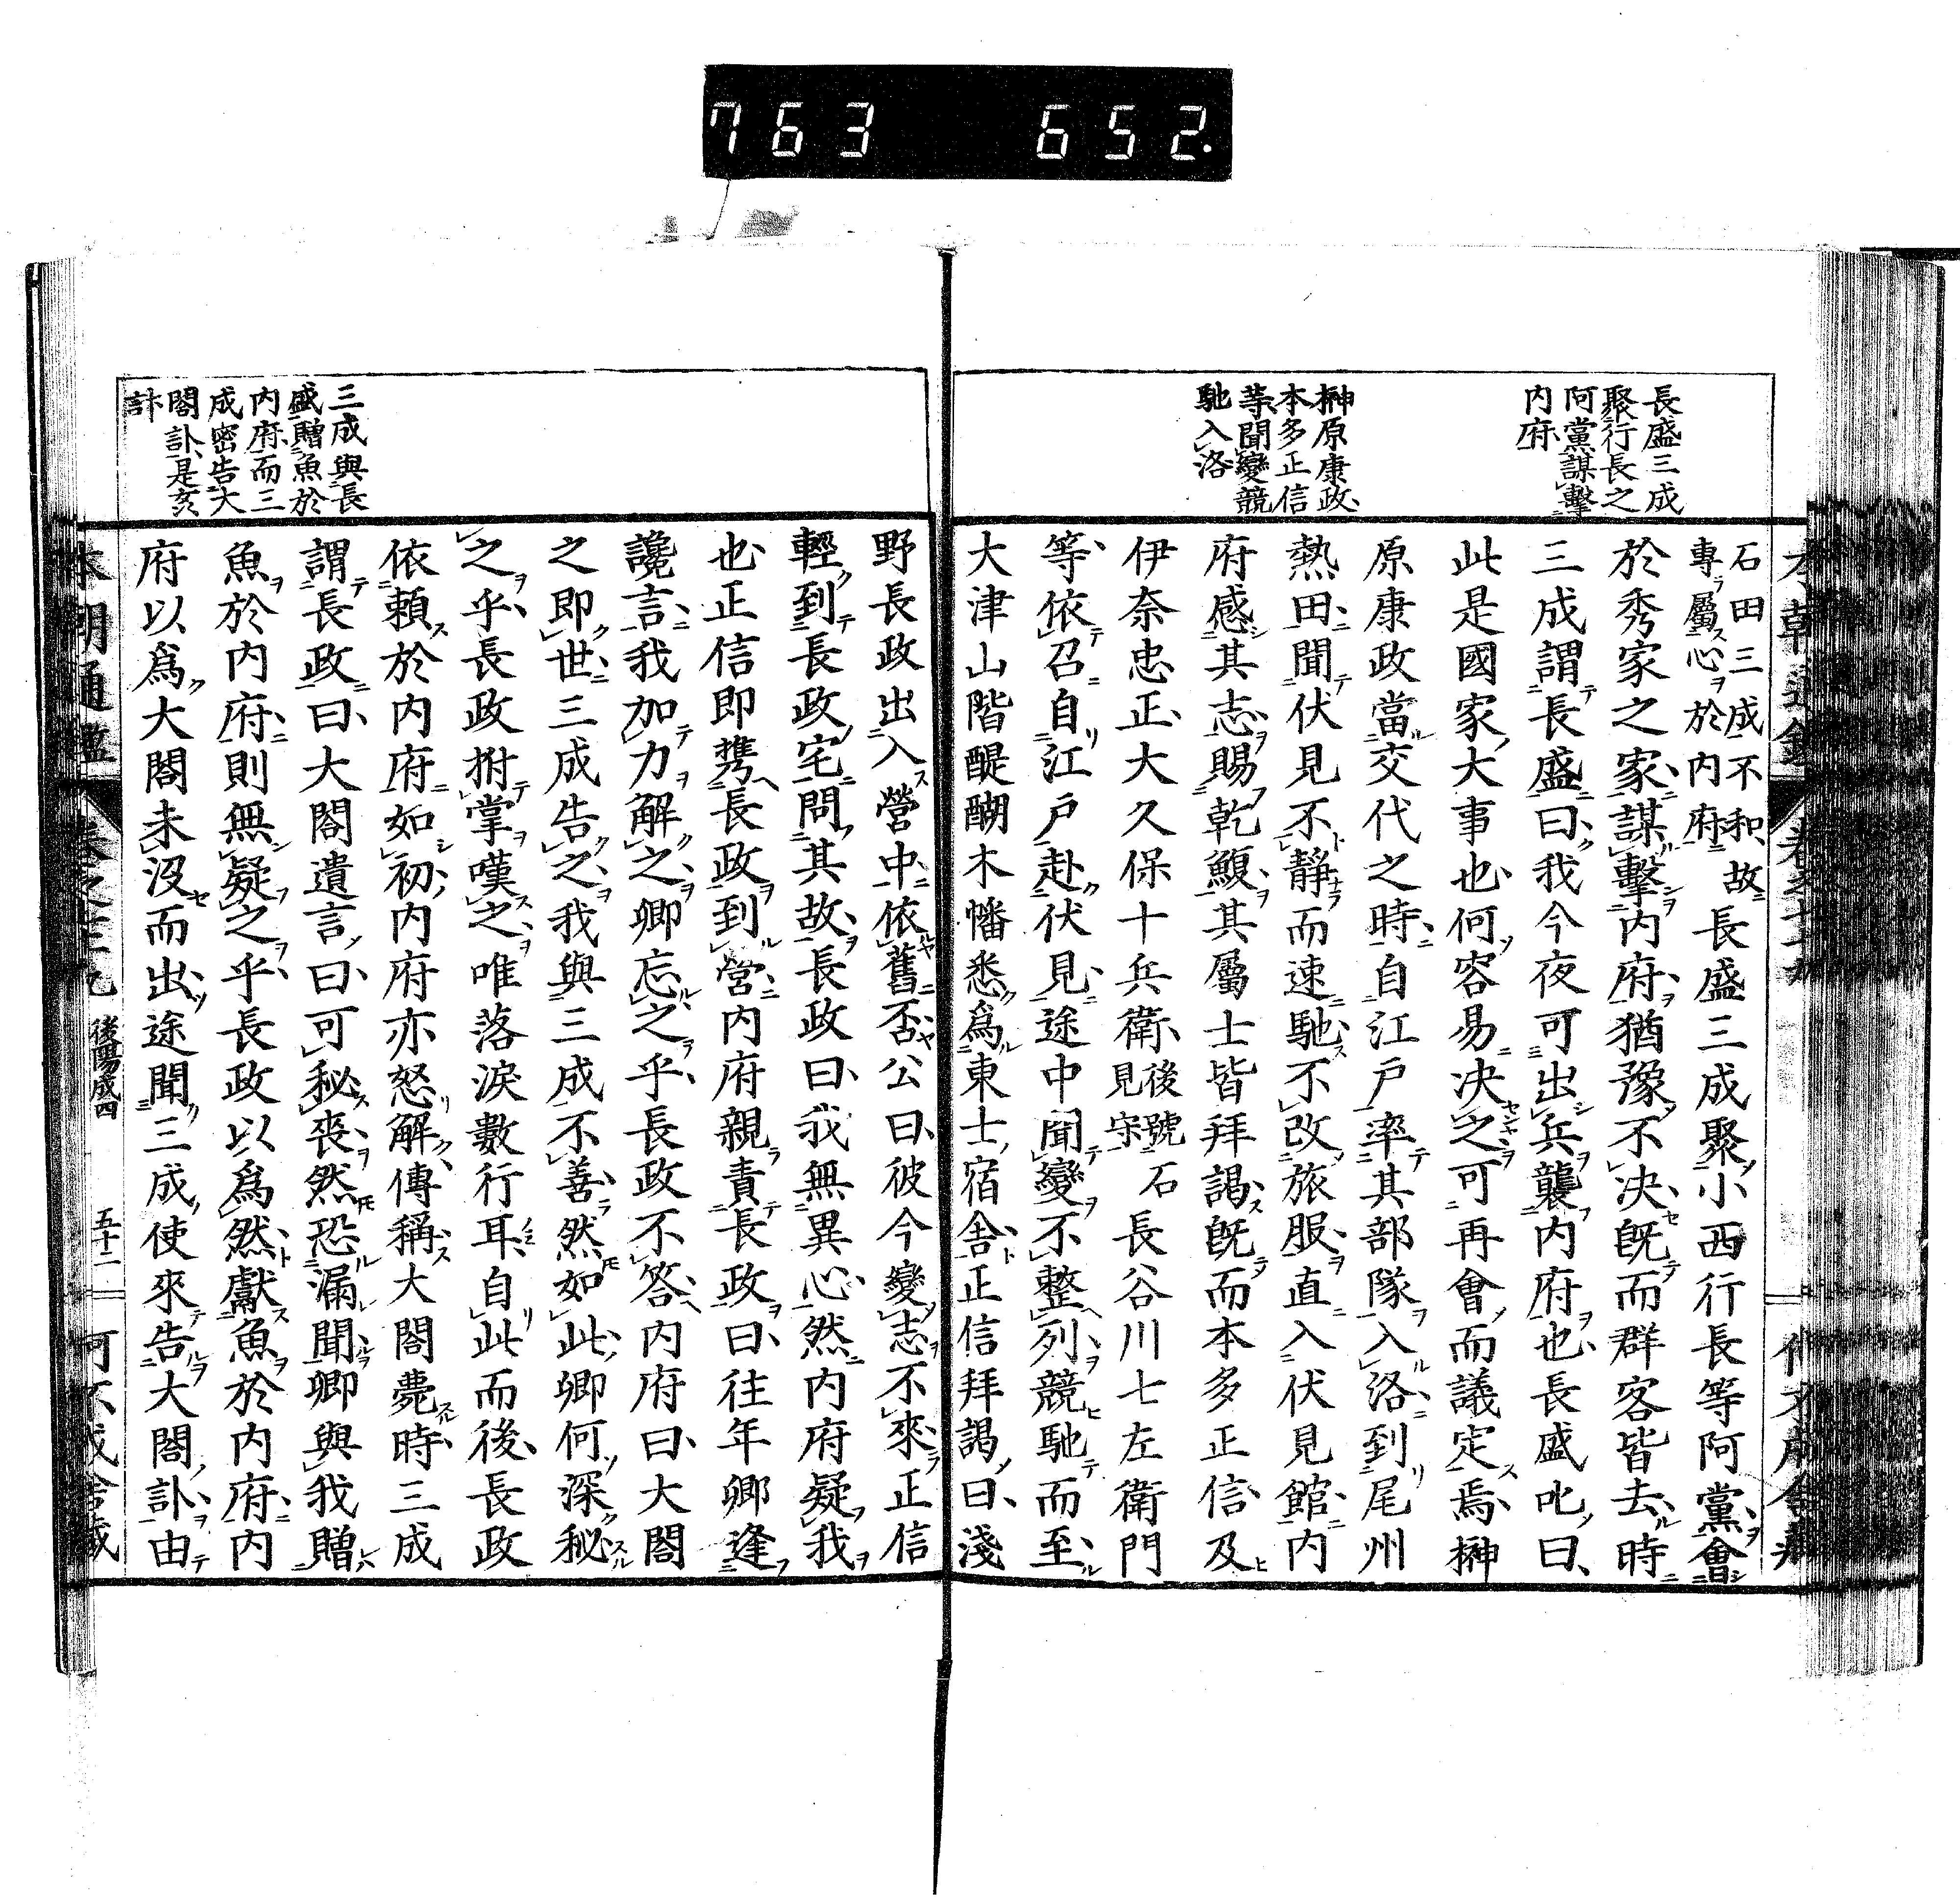 763 652.
長盛三成
聚行長之
阿黨謀擊
内府
榊原康政
本多正信
等聞變競
馳入洛
石田三成不和故
專屬心於内府
長盛三成聚小西行長等阿黨會
於秀家之家謀擊内府猶豫不决旣而群客皆去時
三成謂長盛曰我今夜可出兵襲内府也長盛叱曰
此是國家大事也何容易决之可再會而議定焉榊
原康政當交代之時自江戸率其部隊入洛到尾州
熱田聞伏見不靜而速馳不改旅服直入伏見館内
府感其志賜乾鰒其屬士皆拜謁旣而本多正信及
伊奈忠正大久保十兵衛
後號
石
見守
長谷川七左衛門
等依召自江戸赴伏見途中聞變不整列競馳而至
大津山階醍醐木幡悉爲東士宿舎正信拜謁曰淺
三成與長
盛贈魚於
内府而三
成密告大
閤訃是亥
訃
野長政出入營中依舊否公曰彼今變志不來正信
輕到長政宅問其故長政曰我無異心然内府疑我
也正信即携長政到營内府親責長政曰往年卿逢
讒言我加力解之卿忘之乎長政不答内府曰大閤
之即世三成告之我與三成不善然如此卿何深秘
之乎長政拊掌嘆之唯落淚數行耳自此而後長政
依賴於内府如初内府亦怒解傳稱大閤薨時三成
謂長政曰大閤遺言曰可秘喪然恐漏聞卿與我贈
魚於内府則無疑之乎長政以爲然獻魚於内府内
府以爲大閤未沒而出途聞三成使來告大閤訃由
本朝通鑑
後陽成四
五十二